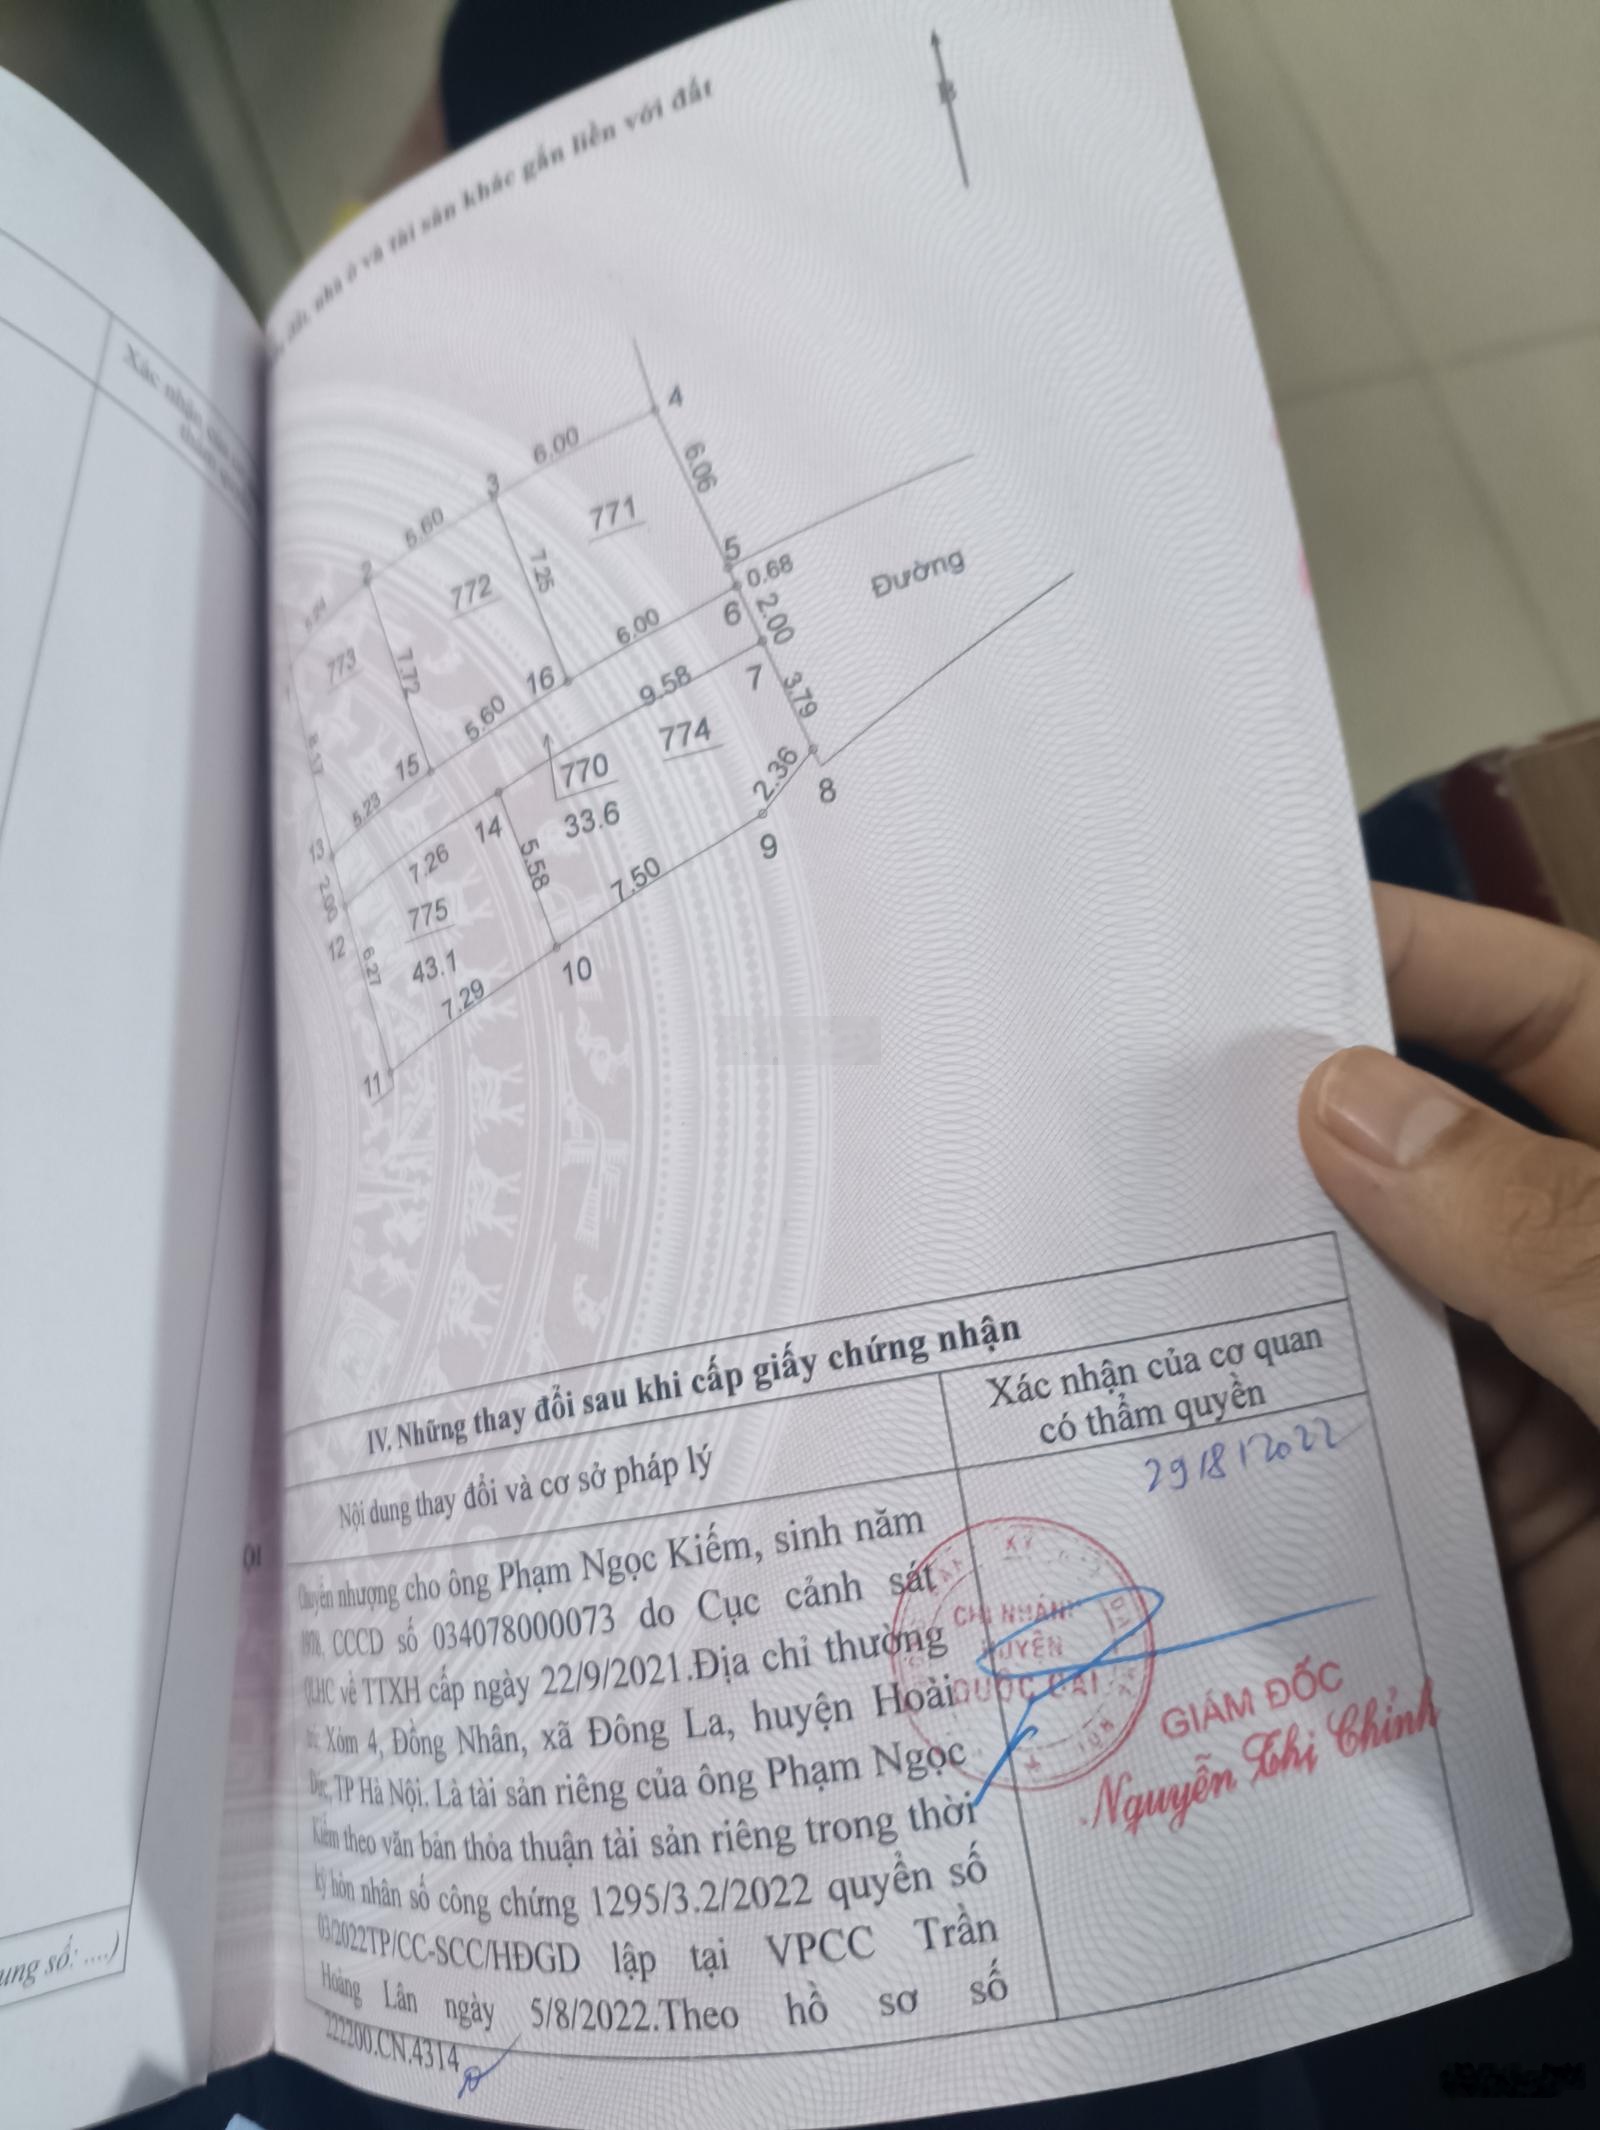 nhà ở và tài sản khác gắn liền với đất
B
Xác nhận của cơ
4
6.00
3
6.06
5.60
771
2
5
7.25
0.68
Đường
772
6
2.00
6.00
773
7.72
16
9.58
7
3.79
5.60
774
15
770
2.36
8
5.23
33.6
14
9
13
7.26
5.58
7.50
2.00
775
12
6.27
43.1
10
7.29
11
IV. Những thay đổi sau khi cấp giấy chứng nhận
Nội dung thay đổi và cơ sở pháp lý
Xác nhận của cơ quan
có thẩm quyền
29/8/2022
Chuyển nhượng cho ông Phạm Ngọc Kiếm, sinh năm
1978, CCCD số 034078000073 do Cục cảnh sát
QLHC về TTXH cấp ngày 22/9/2021.Địa chỉ thường
trú: Xóm 4, Đồng Nhân, xã Đông La, huyện Hoài
Đức, TP Hà Nội. Là tài sản riêng của ông Phạm Ngọc
Kiếm theo văn bản thỏa thuận tài sản riêng trong thời
kỳ hôn nhân số công chứng 1295/3.2/2022 quyển số
03/2022TP/CC-SCC/HĐGD lập tại VPCC Trần
Hoàng Lân ngày 5/8/2022.Theo hồ sơ số
222200.CN.4314
CHI NHÁNH
HUYỆN
QUỐC OAI
GIÁM ĐỐC
Nguyễn Thị Chỉnh
ung số: ....)